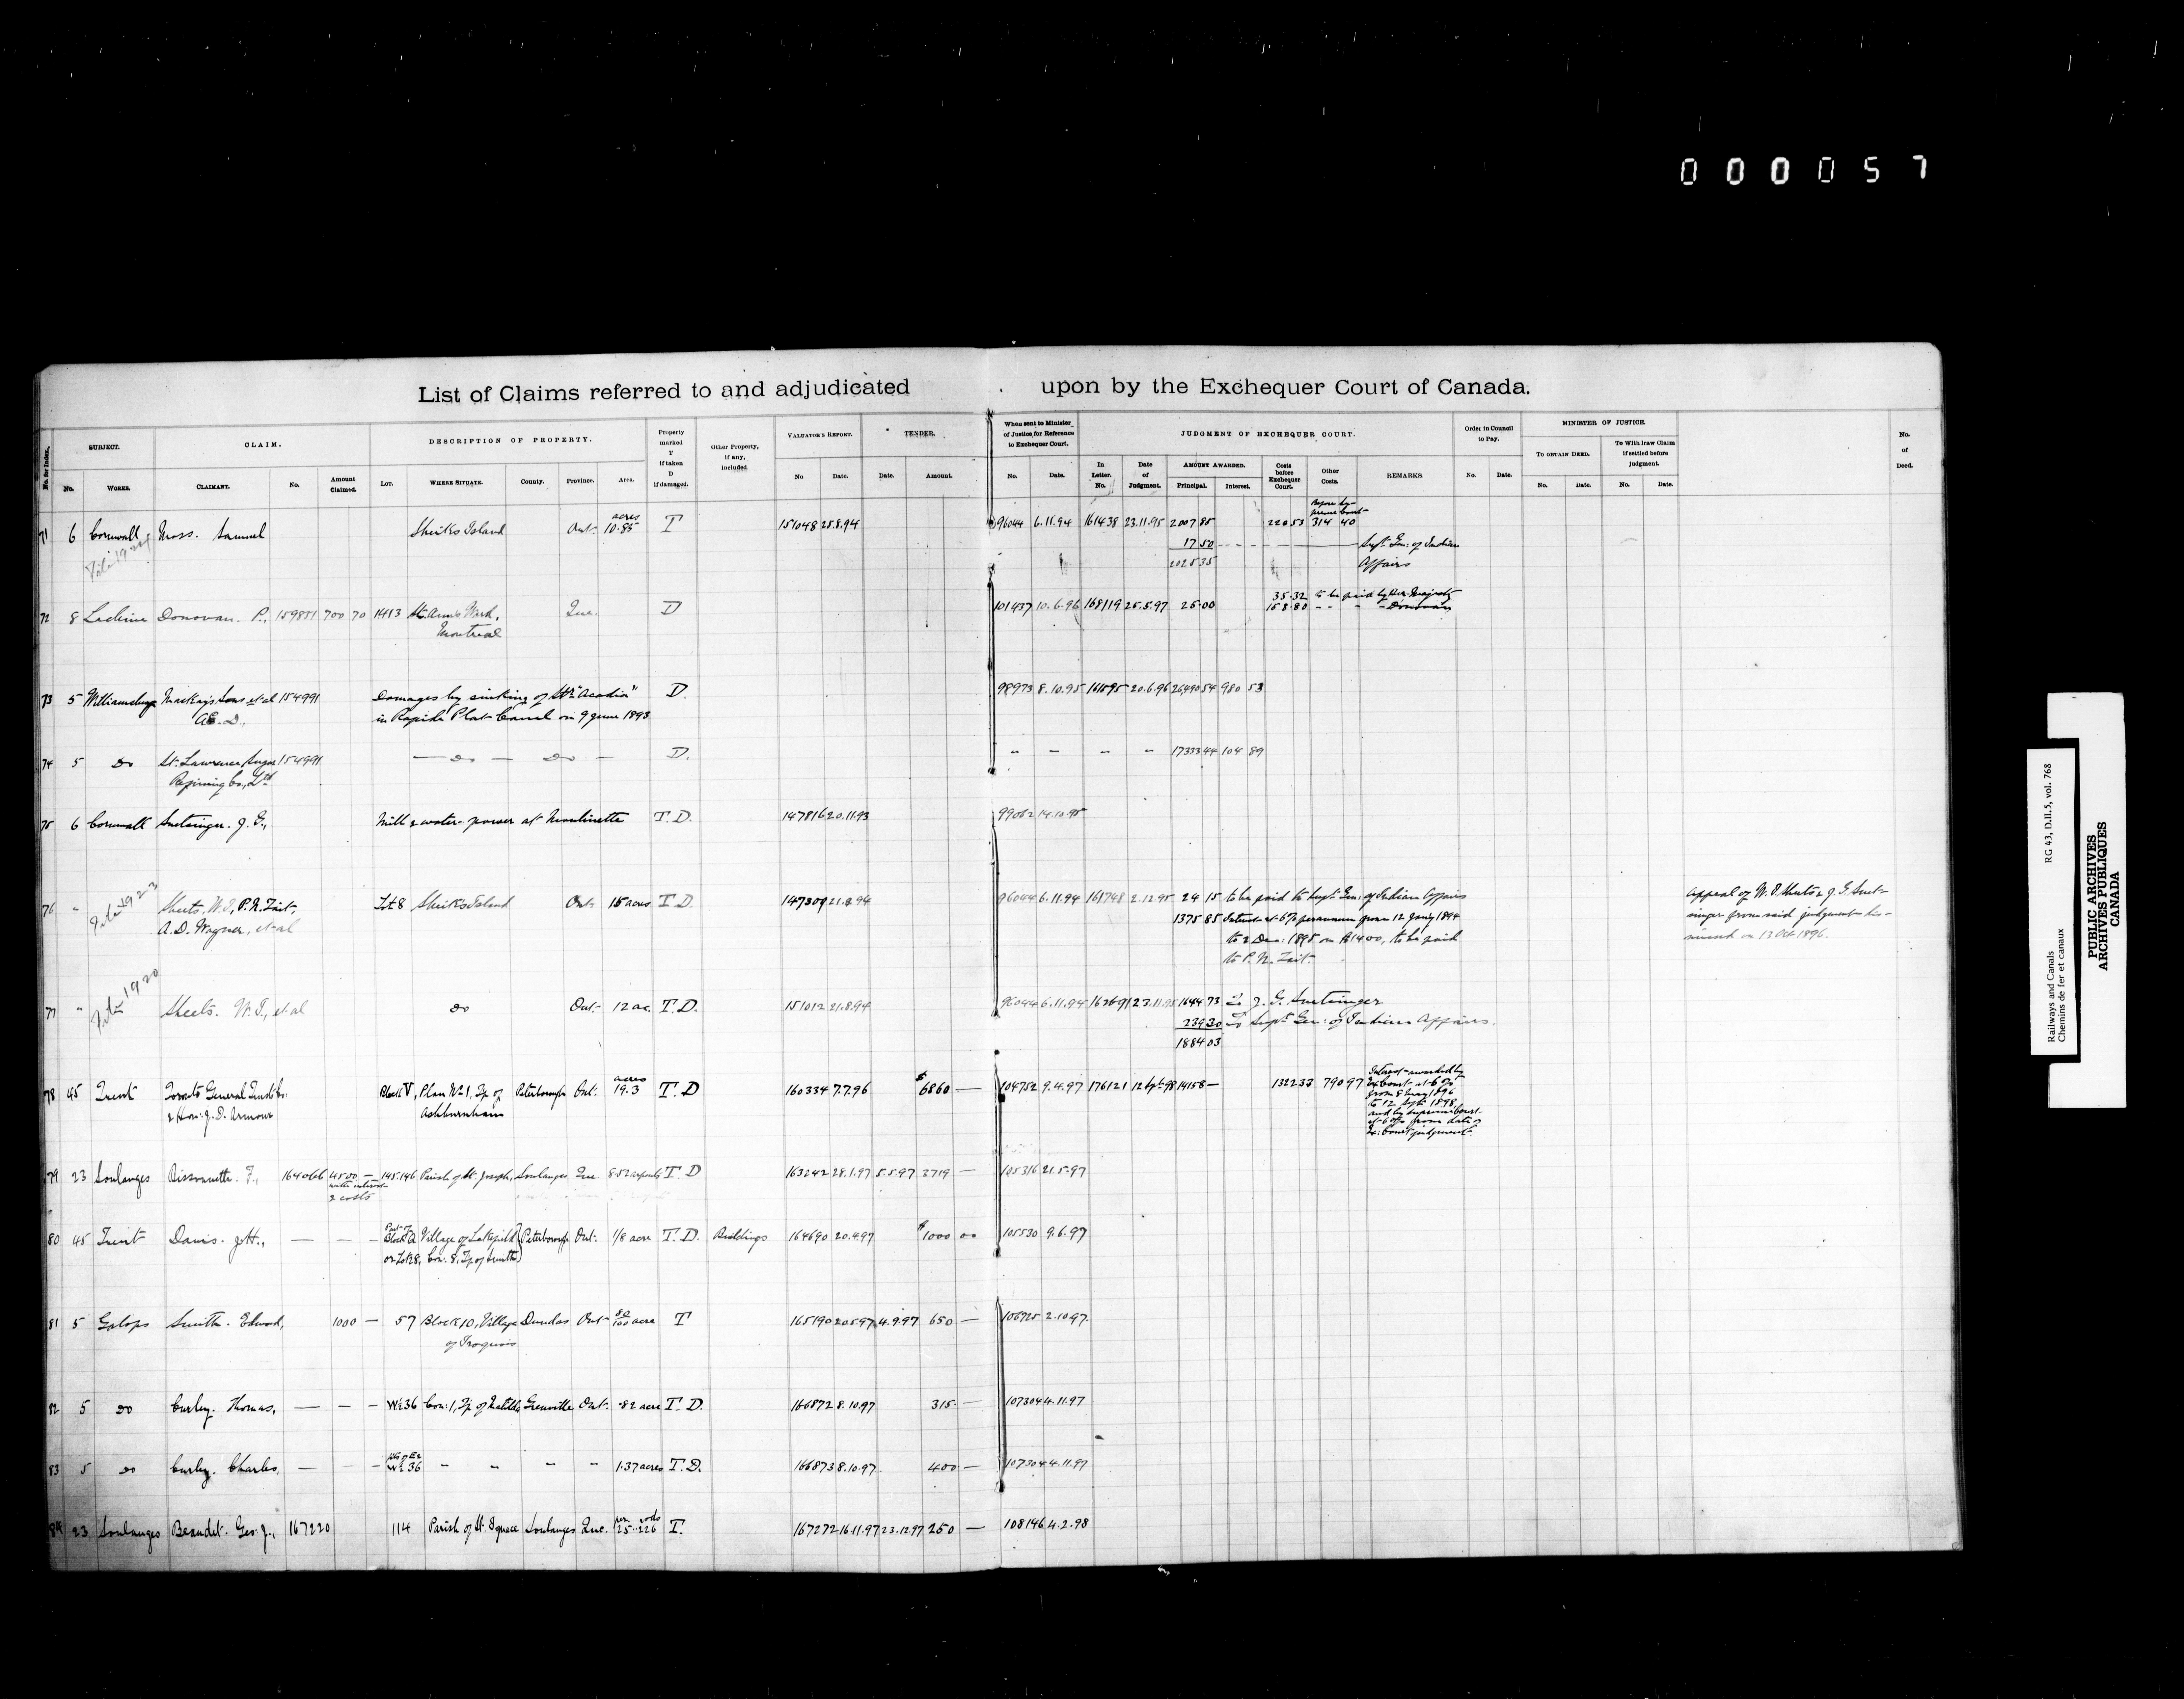 000057
List of Claims referred to and adjudicated upon by the Exchequer Court of Canada.
No. for Index.
SUBJECT.
No. WORKS.
CLAIM.
CLAIMANT. No. Amount Claimed.
DESCRIPTION OF PROPERTY.
LOT. WHERE SITUATE. County. Province. Area.
Property marked T if taken D if damaged.
Other Property, if any, included
VALUATOR'S REPORT.
No Date.
TENDER.
Date. Amount.
When sent to Minister of Justice for Reference to Exchequer Court.
No. Date.
JUDGMENT OF EXCHEQUER COURT.
In Letter. No. Date of Judgment. AMOUNT AWARDED. Principal. Interest. Costs before Exchequer Court. Other Costs. REMARKS.
Order in Council to Pay.
No. Date.
MINISTER OF JUSTICE.
TO OBTAIN DEED. No. Date.
To Withdraw Claim if settled before judgment. No. Date.
No. of Deed.
71 6 Cornwall Moss. Samuel Sheiks Island Ont. acres 10.85 T 151048 25.8.94 96044 6.11.94 161438 23.11.95 2007 85 220 53 314 40
17 50 Supt. Gen: of Indian
2025 35 Affairs
72 8 Lachine Donovan. P., 159851 700 70 1413 St. Ann's Ward, Que. D 101437 10.6.96 168119 25.5.97 25.00 35.32 to be paid by Her Majesty
Montreal 158.80 - - - Donovan
73 5 Williamsburg Mackay's Sons et al 154991 Damages by sinking of Str "Acadia" D. 98973 8.10.95 20.6.96 26490 54 980 53
in Rapide Plat Canal on 9 June 1893
74 5 Do St. Lawrence Sugar 154991 — Do — Do — D. - - - - 17333 44 104 89
Refining Co., Ltd
75 6 Cornwall Snetsinger. J. G., Mill & water-power at Moulinette T.D. 147816 20.11.93 99062 14.10.95
76 " File 1923 Sheets, W. J., P. N. Tait, Lot 8 Sheiks Island Ont. 15 acres T D 147309 21.8.94 96044 6.11.94 161748 2.12.95 24 15 to be paid to Supt. Gen: of Indian Affairs
A. D. Wagner, et al 1375 85 Interest at 6% per annum from 12 Jany 1894
to 2 Dec: 1895 on $1400, to be paid
to P. N. Tait
Appeal of W. J. Sheets & J. G. Snet-
singer from said judgment dis-
missed on 13 Oct 1896.
77 " File 1920 Sheets. W. J., et al Do Ont. 12 ac. T.D. 151012 21.8.94 96044 6.11.94 23.11.95 1644 73 To J. G. Snetsinger
239 30 To Supt Gen: of Indian Affairs.
1884 03
78 45 Trent Toronto General Trusts Co. Block V, Plan No 1, Tp. of Peterborough Ont. acres 19.3 T.D 160334 7.7.96 $6860 — 104752 9.4.97 176121 12 Sept 98 14158 — 1322 33 790 97 Interest awarded by
& Hon: J. D. Armour Ashburnham Ex Court at 6%
from 8 May 1896
to 12 Sept 1898,
and by Supreme Court
at 6% from date of
Ex: Court judgment.
79 23 Soulanges Bissonnette. F., 164066 4500 — 145.146 Parish of St. Joseph, Soulanges Que. 8.52 arpents T.D 163242 28.1.97 5.5.97 2719 — 105316 21.5.97
with interest
& costs
80 45 Trent Davis. J. H., — — — Part of Block A Village of Lakefield Peterborough Ont. 1/8 acre T.D. Buildings 164690 20.4.97 $1000 00 105530 9.6.97
or Lot 28, Con. 8, Tp of Smith
81 5 Galops Smith. Edward, 1000 — 57 Block 10, Village Dundas Ont 80/100 acre T 165190 20.5.97 4.9.97 650 — 106725 2.10.97
of Iroquois
82 5 Do Curley. Thomas, — — — W½ 36 Con: 1, Tp of Matilda Grenville Ont. .82 acre T.D. 166872 8.10.97 315 — 107304 4.11.97
83 5 Do Curley. Charles, — — W½ 36 - - - - 1.37 acres T.D. 166873 8.10.97 400 — 107304 4.11.97
84 23 Soulanges Beaudet. Geo. J., 167220 114 Parish of St. Ignace Soulanges Que. T. 167272 16.11.97 23.12.97 250 — 108146 4.2.98
Railways and Canals RG 43, D.II.5, vol. 768
Chemins de fer et canaux
PUBLIC ARCHIVES
ARCHIVES PUBLIQUES
CANADA